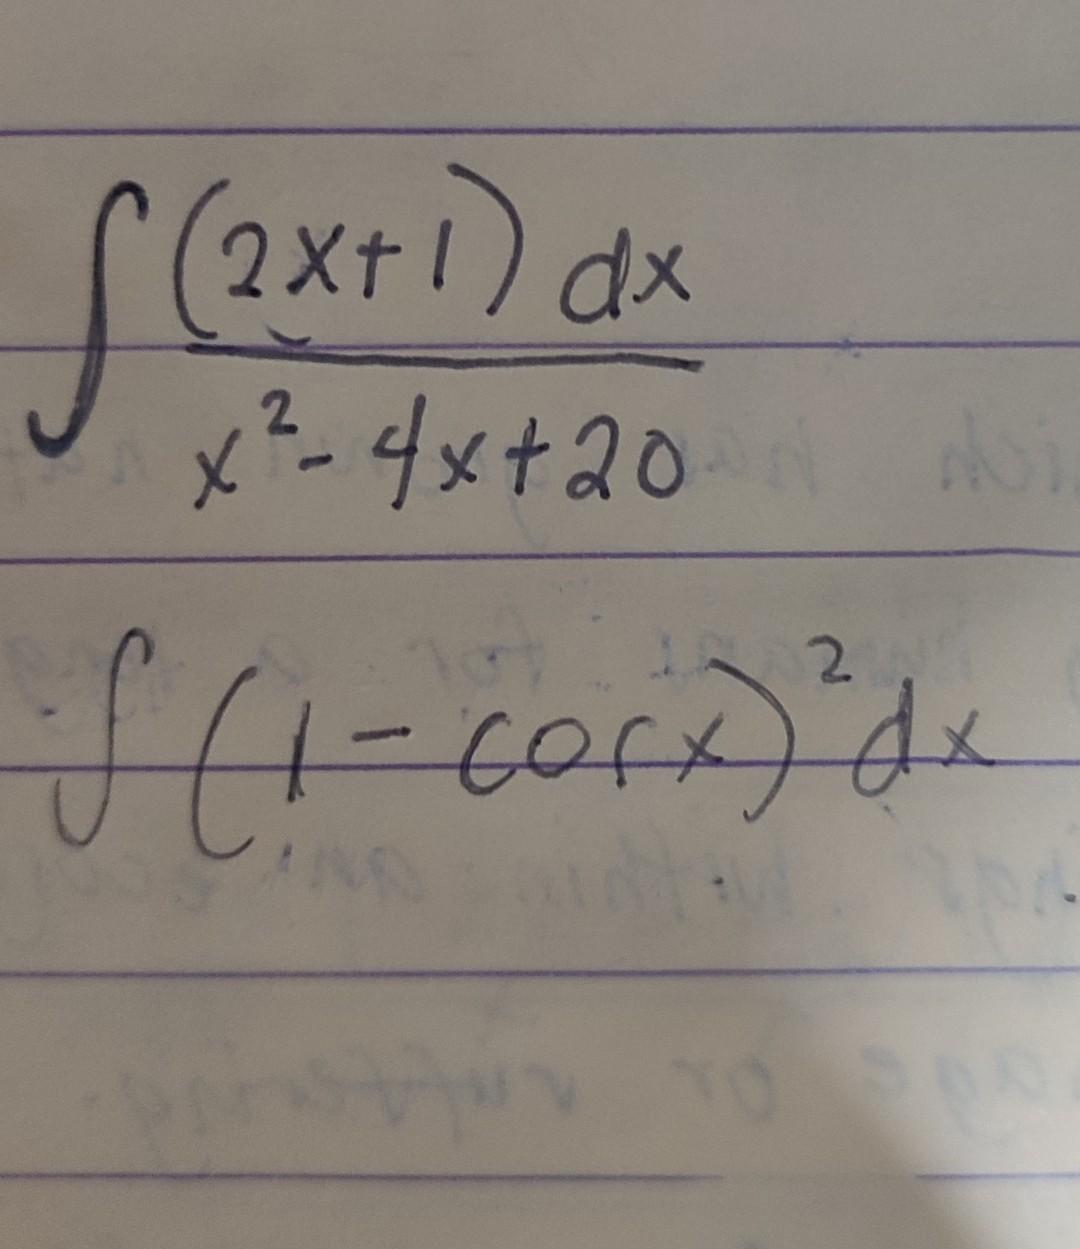 ∫ (2x+1) dx / x² - 4x + 20
∫ (1 - cosx)² dx